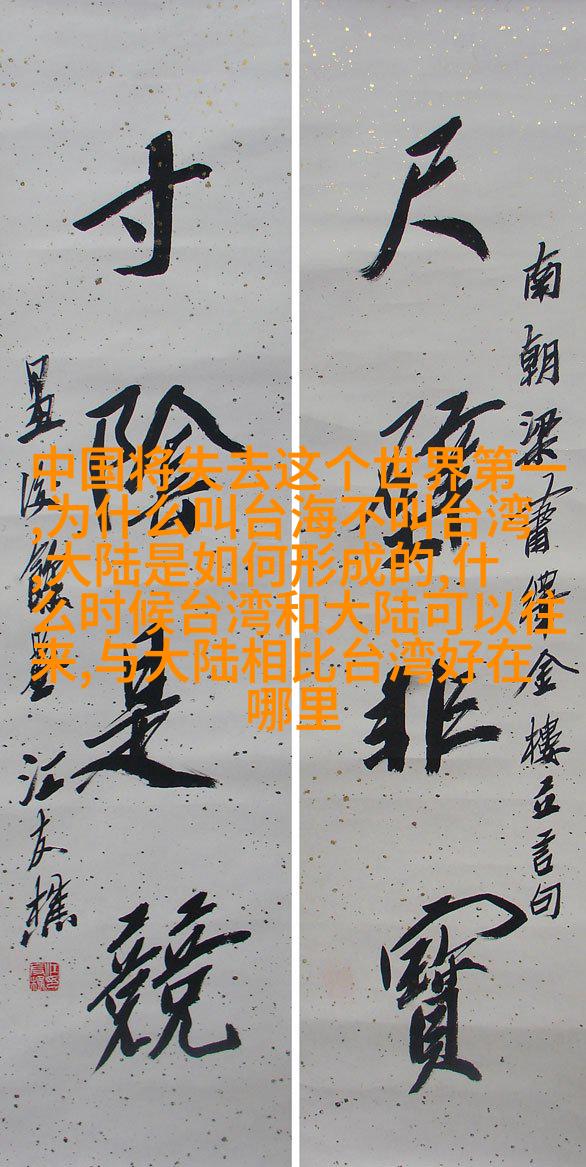 南朝梁蕭繹金樓立言句
尺璧非寶
寸陰是競
汪友樵
中国将失去这个世界第一
,为什么叫台海不叫台湾
,大陆是如何形成的,什
么时候台湾和大陆可以往
来,与大陆相比台湾好在
哪里